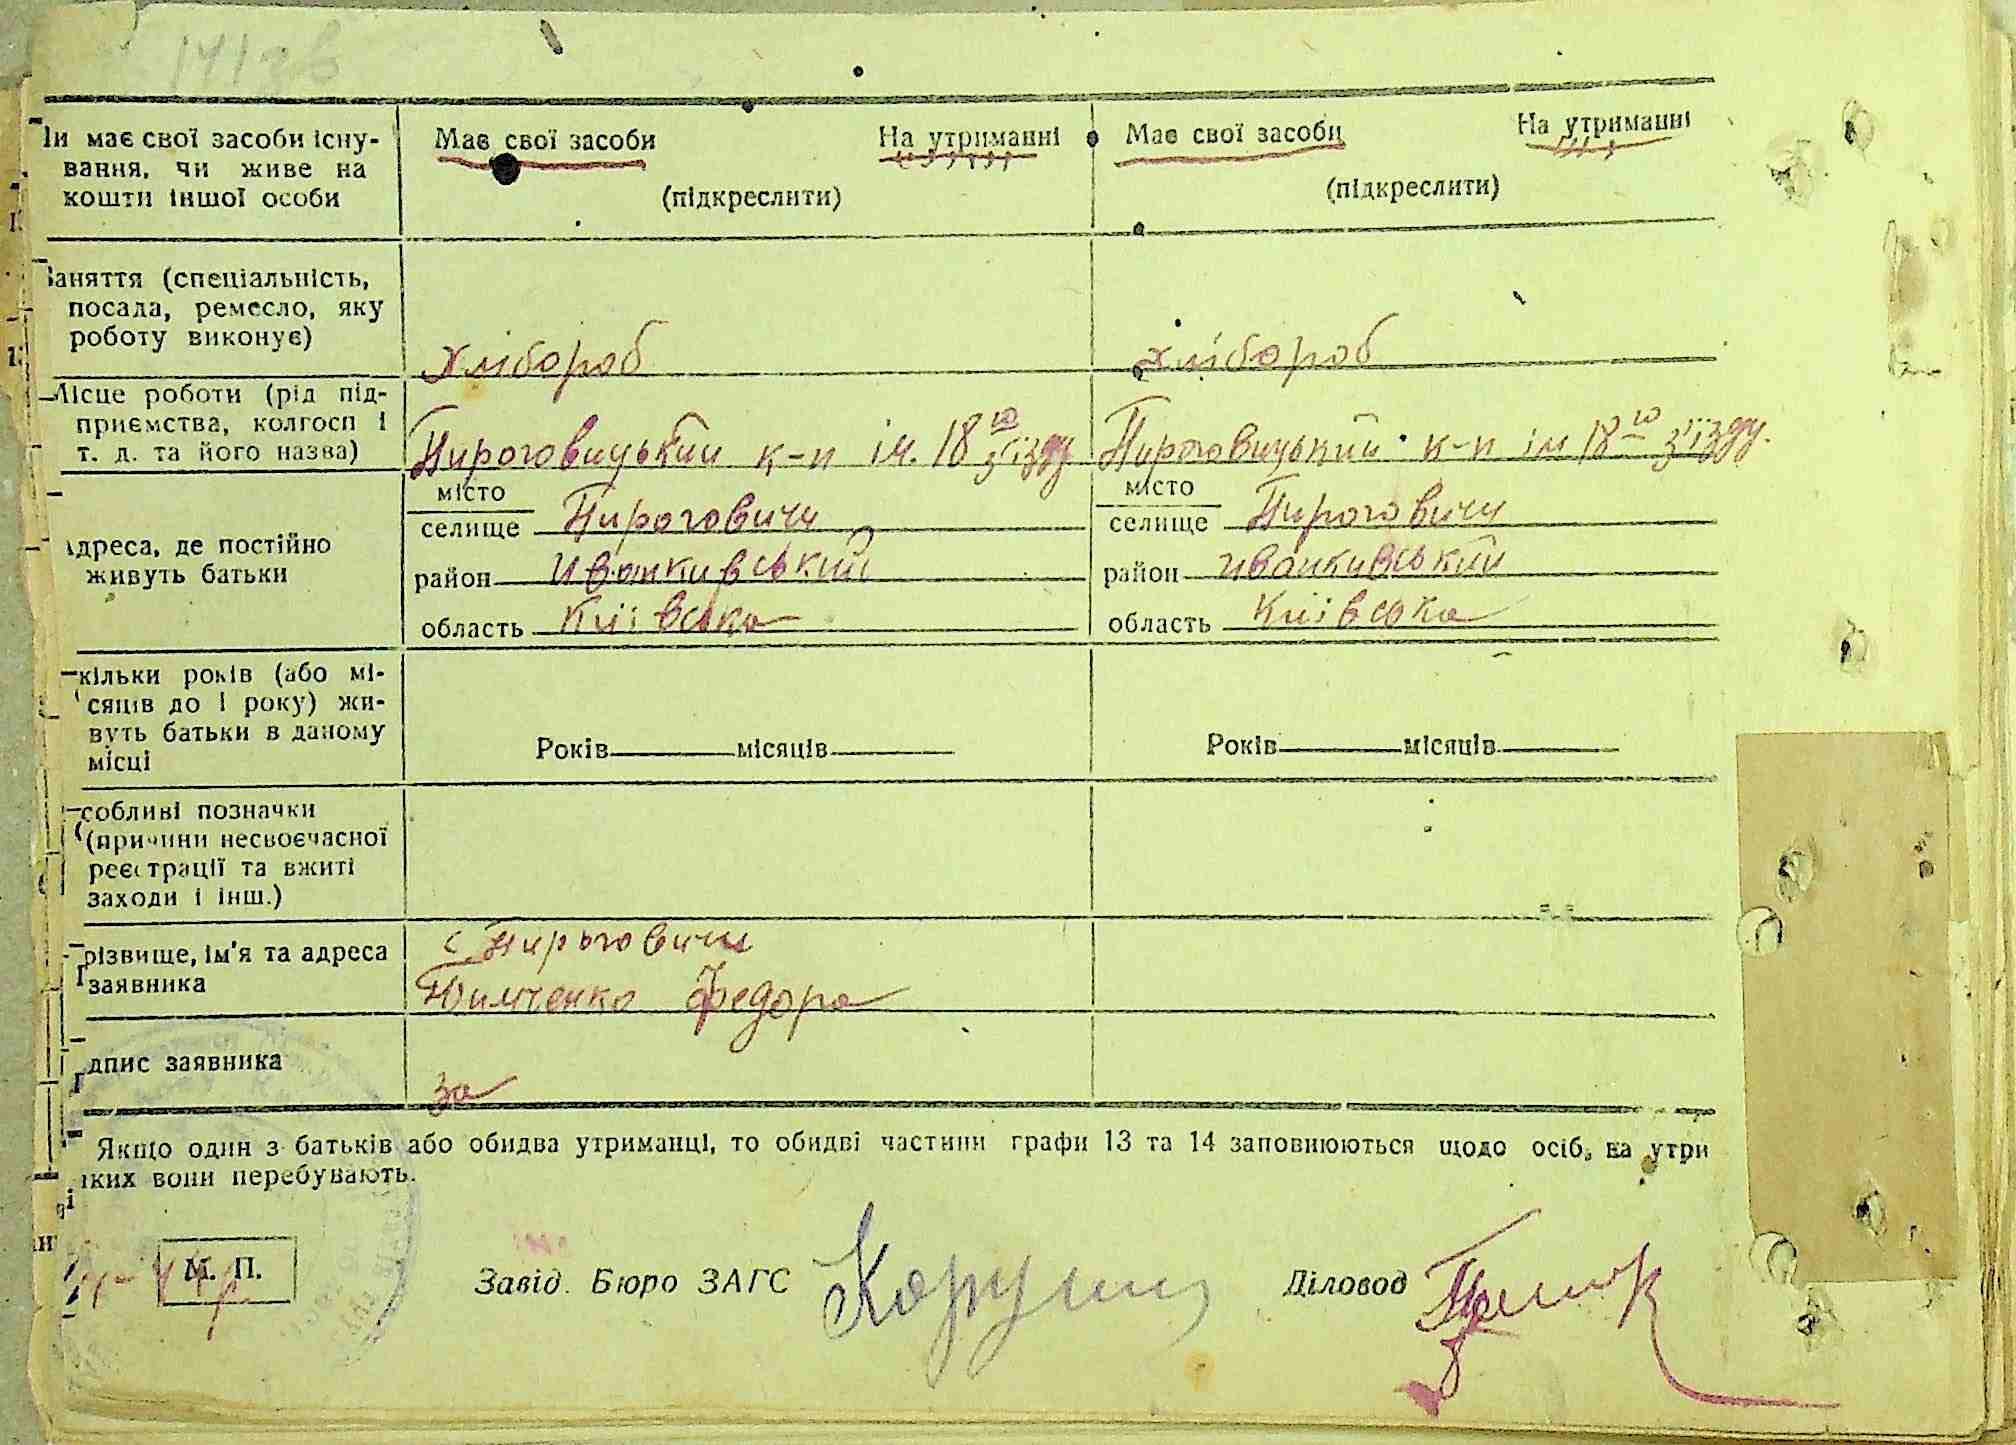 Чи має свої засоби існу-
вання, чи живе на
кошти іншої особи
Має свої засоби На утриманні
(підкреслити)
Має свої засоби На утриманні
(підкреслити)
Заняття (спеціальність,
посада, ремесло, яку
роботу виконує)
хлібороб
хлібороб
Місце роботи (рід під-
приємства, колгосп і
т. д. та його назва)
Пироговицький к-п ім. 18го з'їзду
Пироговицький к-п ім 18го з'їзду.
Адреса, де постійно
живуть батьки
місто
селище Пироговичи
район Иванкивський
область Київська
місто
селище Пироговичи
район Иванкивський
область Київська
кільки років (або мі-
сяців до 1 року) жи-
вуть батьки в даному
місці
Років місяців
Років місяців
собливі позначки
(причини несвоєчасної
реєстрації та вжиті
заходи і інш.)
різвище, ім'я та адреса
заявника
с Пироговичи
Тимченко Федора
дпис заявника
за
Якщо один з батьків або обидва утриманці, то обидві частини графи 13 та 14 заповнюються щодо осіб, на утри
яких вони перебувають.
М. П.
Завід. Бюро ЗАГС
Діловод